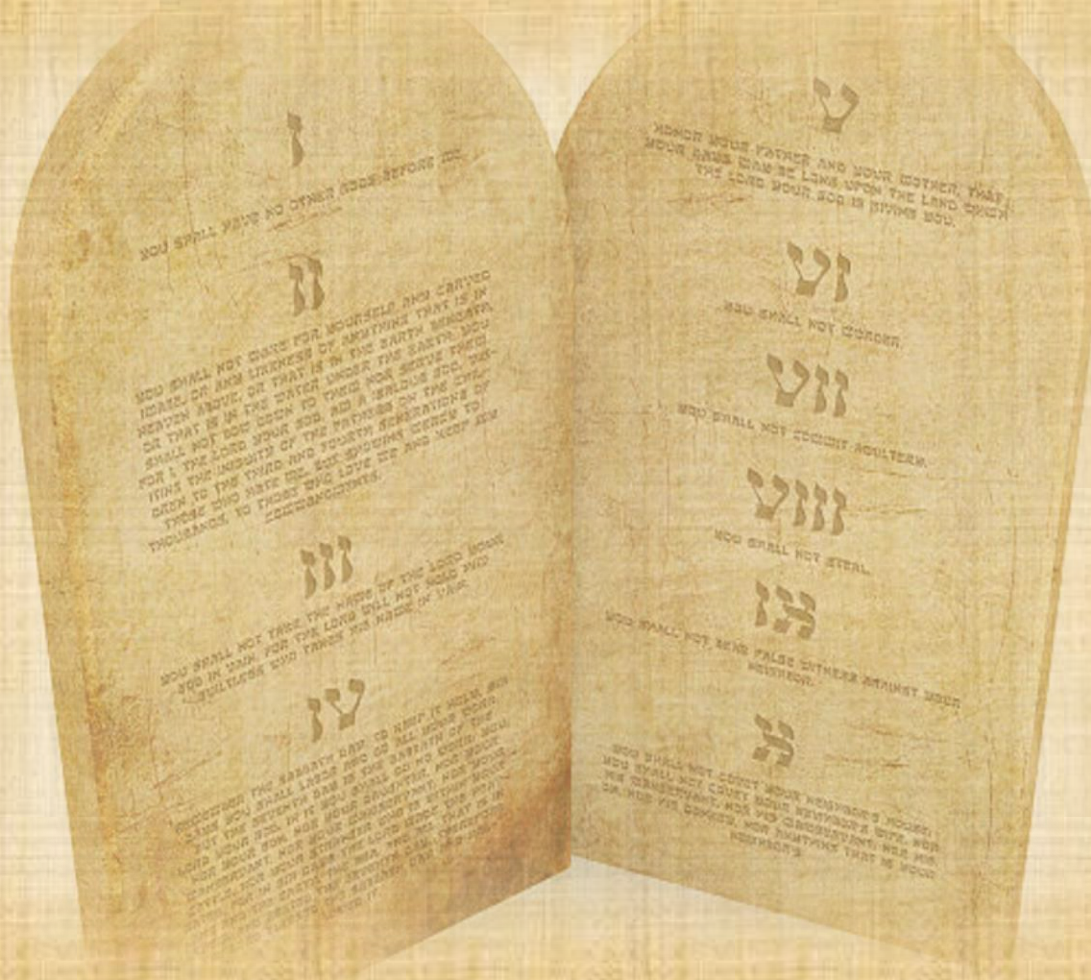 I
YOU SHALL HAVE NO OTHER GODS BEFORE ME.
II
YOU SHALL NOT MAKE FOR YOURSELF ANY CARVED
IMAGE, OR ANY LIKENESS OF ANYTHING THAT IS IN
HEAVEN ABOVE, OR THAT IS IN THE EARTH BENEATH,
OR THAT IS IN THE WATER UNDER THE EARTH. YOU
SHALL NOT BOW DOWN TO THEM NOR SERVE THEM.
FOR I, THE LORD YOUR GOD, AM A JEALOUS GOD, VIS-
ITING THE INIQUITY OF THE FATHERS ON THE CHIL-
DREN TO THE THIRD AND FOURTH GENERATIONS OF
THOSE WHO HATE ME, BUT SHOWING MERCY TO
THOUSANDS, TO THOSE WHO LOVE ME AND KEEP MY
COMMANDMENTS.
III
YOU SHALL NOT TAKE THE NAME OF THE LORD YOUR
GOD IN VAIN, FOR THE LORD WILL NOT HOLD HIM
GUILTLESS WHO TAKES HIS NAME IN VAIN.
IV
REMEMBER THE SABBATH DAY, TO KEEP IT HOLY. SIX
DAYS YOU SHALL LABOR AND DO ALL YOUR WORK,
BUT THE SEVENTH DAY IS THE SABBATH OF THE
LORD YOUR GOD. IN IT YOU SHALL DO NO WORK: YOU,
NOR YOUR SON, NOR YOUR DAUGHTER, NOR YOUR
V
HONOR YOUR FATHER AND YOUR MOTHER, THAT
YOUR DAYS MAY BE LONG UPON THE LAND WHICH
THE LORD YOUR GOD IS GIVING YOU.
VI
YOU SHALL NOT MURDER.
VII
YOU SHALL NOT COMMIT ADULTERY.
VIII
YOU SHALL NOT STEAL.
IX
YOU SHALL NOT BEAR FALSE WITNESS AGAINST YOUR
NEIGHBOR.
X
YOU SHALL NOT COVET YOUR NEIGHBOR'S HOUSE;
YOU SHALL NOT COVET YOUR NEIGHBOR'S WIFE, NOR
HIS MANSERVANT, NOR HIS MAIDSERVANT, NOR HIS
OX, NOR HIS DONKEY, NOR ANYTHING THAT IS YOUR
NEIGHBOR'S